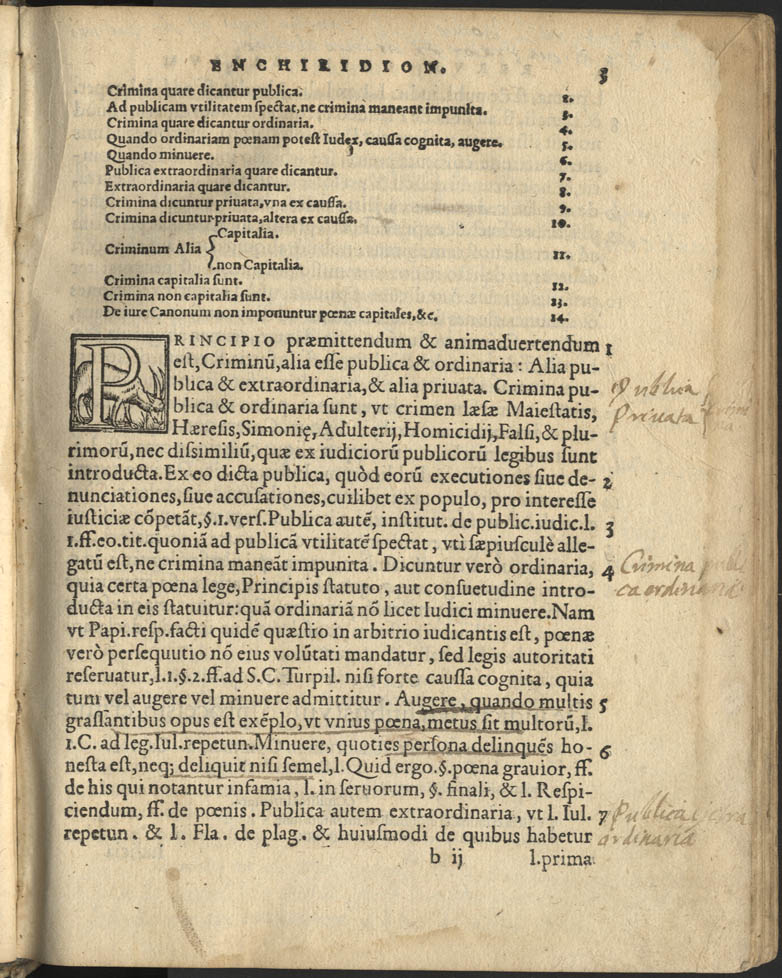 ENCHIRIDION. 3
Crimina quare dicantur publica. 2.
Ad publicam vtilitatem ſpectat, ne crimina maneant impunita. 3.
Crimina quare dicantur ordinaria. 4.
Quando ordinariam pœnam poteſt Iudex, cauſſa cognita, augere. 5.
Quando minuere. 6.
Publica extraordinaria quare dicantur. 7.
Extraordinaria quare dicantur. 8.
Crimina dicuntur priuata, vna ex cauſſa. 9.
Crimina dicuntur priuata, altera ex cauſſa. 10.
Criminum Alia { Capitalia.
non Capitalia. 11.
Crimina capitalia ſunt. 12.
Crimina non capitalia ſunt. 13.
De iure Canonum non imponuntur pœnæ capitales, &c. 14.
PRINCIPIO præmittendum & animaduertendum 1
eſt, Criminū, alia eſſe publica & ordinaria : Alia pu-
blica & extraordinaria, & alia priuata. Crimina pu-
blica & ordinaria ſunt, vt crimen læſæ Maieſtatis,
Hæreſis, Simonię, Adulterij, Homicidij, Falſi, & plu-
rimorū, nec diſsimiliū, quæ ex iudiciorū publicorū legibus ſunt
introducta. Ex eo dicta publica, quòd eorū executiones ſiue de- 2
nunciationes, ſiue accuſationes, cuilibet ex populo, pro intereſſe
iuſticiæ cōpetāt, §.1. verſ. Publica autē, inſtitut. de public. iudic. l. 3
1. ff. eo. tit. quoniā ad publicā vtilitatē ſpectat, vti ſæpiuſculè alle-
gatū eſt, ne crimina maneāt impunita. Dicuntur verò ordinaria, 4
quia certa pœna lege, Principis ſtatuto, aut conſuetudine intro-
ducta in eis ſtatuitur: quā ordinariā nō licet Iudici minuere. Nam
vt Papi. reſp. facti quidē quæſtio in arbitrio iudicantis eſt, pœnæ
verò perſequutio nō eius volūtati mandatur, ſed legis autoritati
reſeruatur, l.1. §.2. ff. ad S.C. Turpil. niſi forte cauſſa cognita, quia
tum vel augere vel minuere admittitur. Augere, quando multis 5
graſſantibus opus eſt exēplo, vt vnius pœna, metus ſit multorū, l.
1. C. ad leg. Iul. repetun. Minuere, quoties perſona delinquēs ho- 6
neſta eſt, neq; deliquit niſi ſemel, l. Quid ergo. §. pœna grauior, ff.
de his qui notantur infamia, l. in ſeruorum, §. finali, & l. Reſpi-
ciendum, ff. de pœnis. Publica autem extraordinaria, vt l. Iul. 7
repetun. & l. Fla. de plag. & huiuſmodi de quibus habetur
b ij l.prima
Publica
Priuata
Crimina publi
ca ordinaria
Publica extra
ordinaria